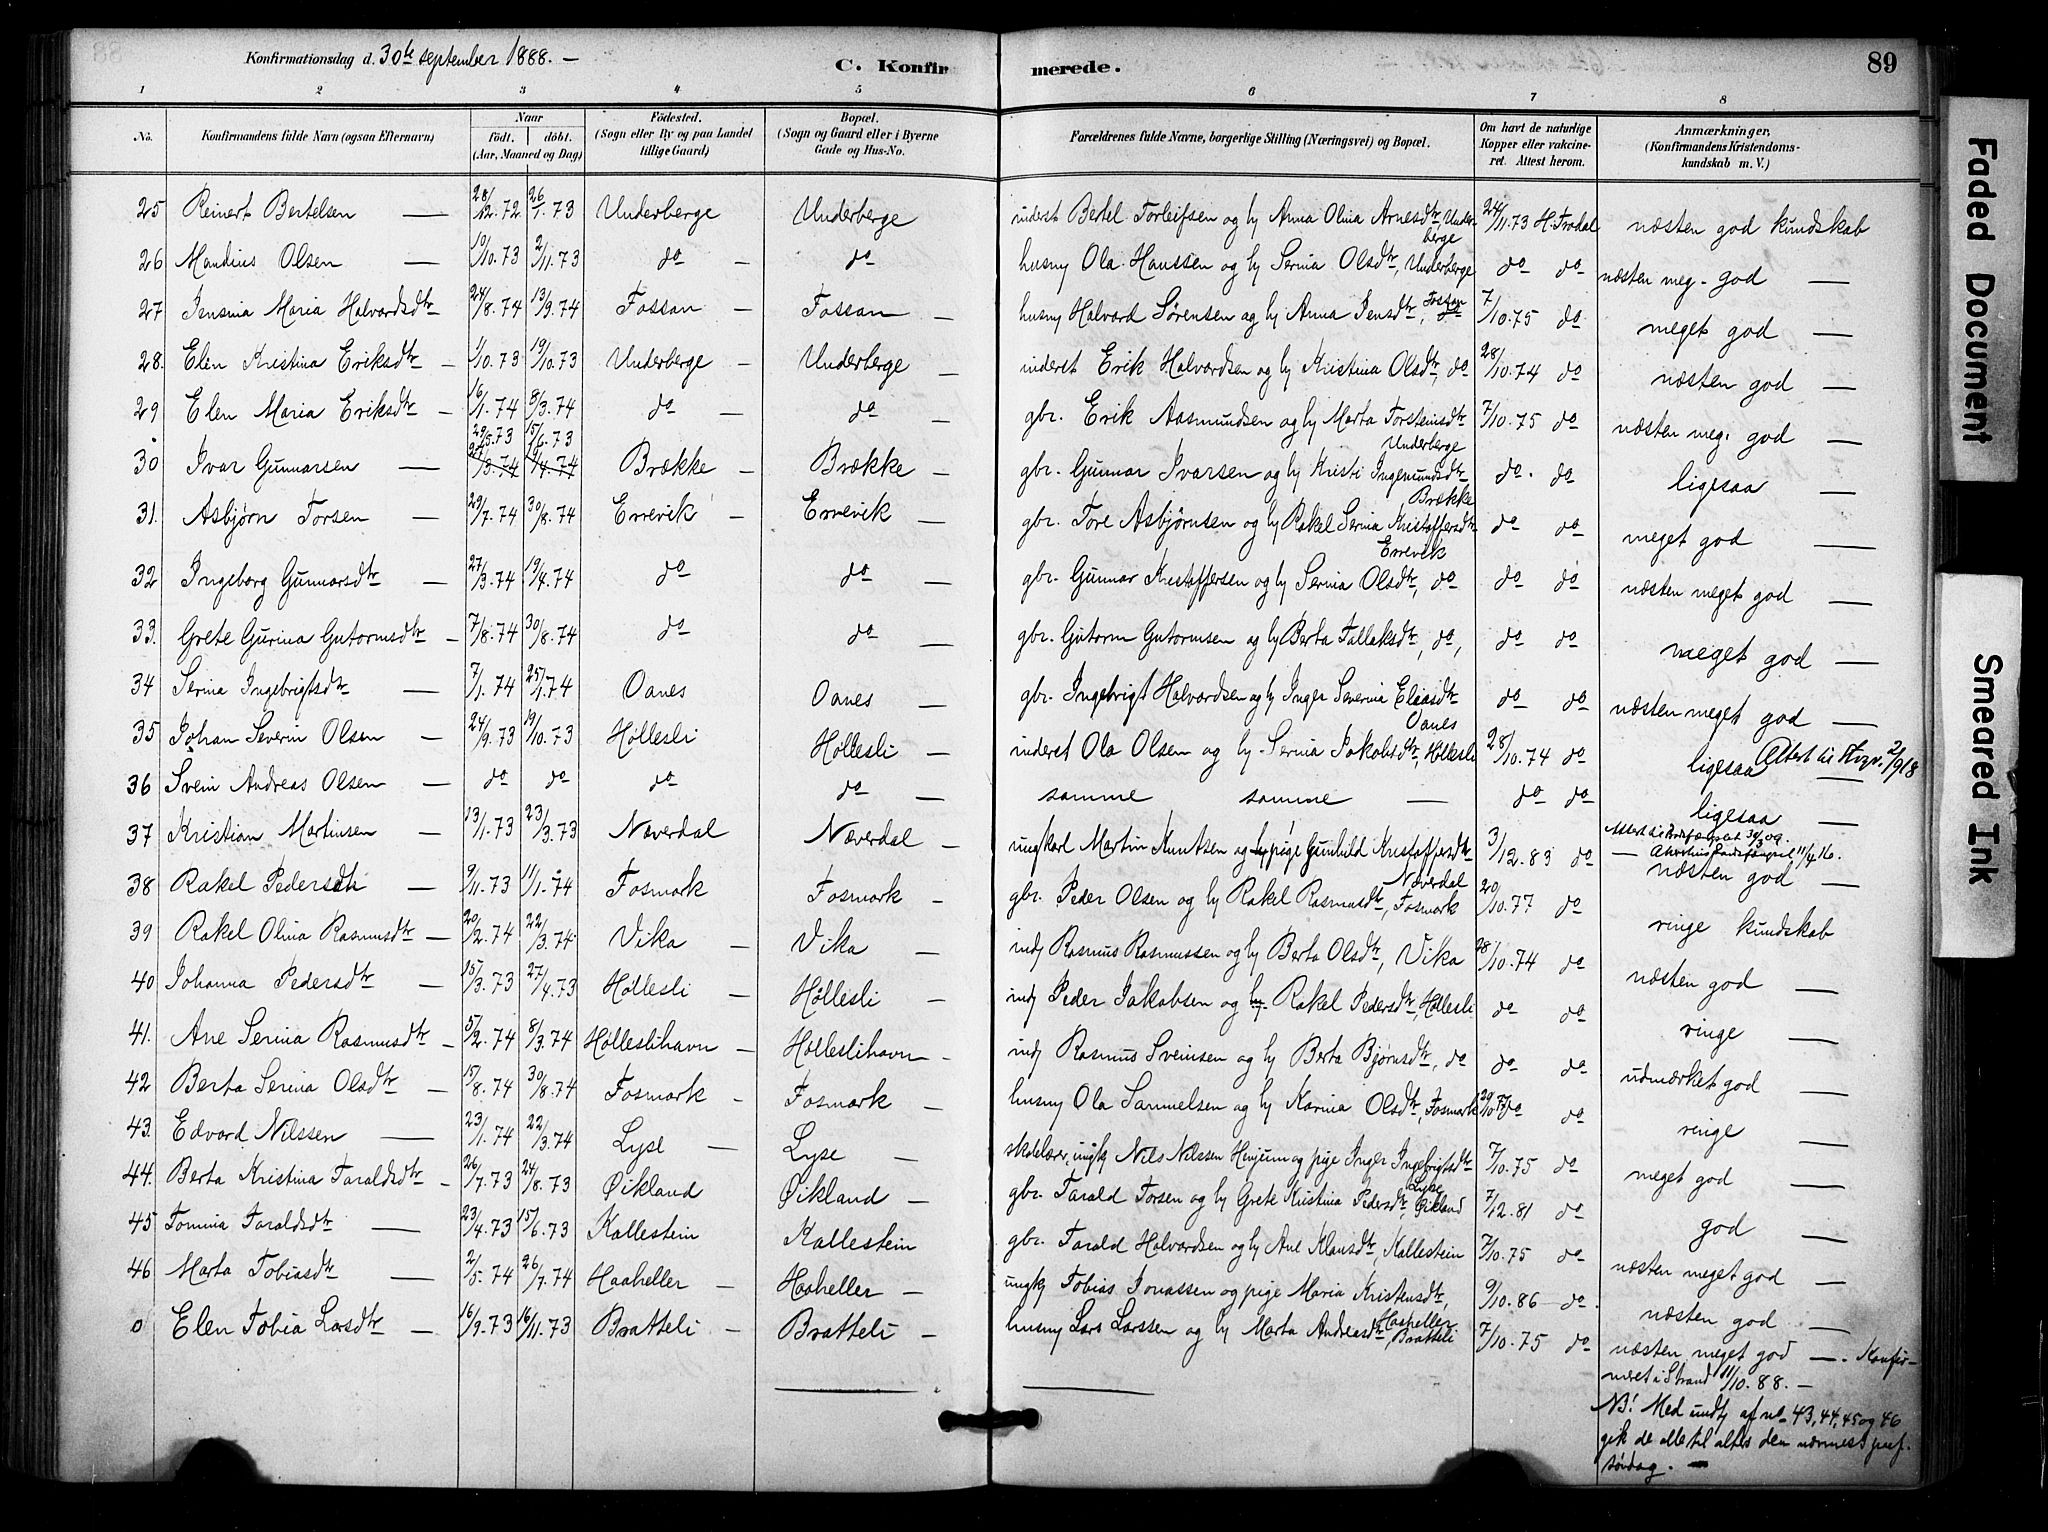 Konfirmationsdag d. 30te september 1888. — C. Konfirmerede. 89
1 2 3 4 5 6 7 8
No. Konfirmandens fulde Navn (ogsaa Efternavn) Naar født. døbt. (Aar, Maaned og Dag) Fødested. (Sogn eller By og paa Landet tillige Gaard) Bopæl. (Sogn og Gaard eller i Byerne Gade og Hus-No. Forældrenes fulde Navne, borgerlige Stilling (Næringsvei) og Bopæl. Om havt de naturlige Kopper eller vakcineret. Attest herom. Anmærkninger, (Konfirmandens Kristendomskundskab m. V.)
25 Reinert Bertelsen — 28/12.72 26/1.73 Underberge Underberge inderst Bertel Torleifsen og hu Anna Olina Arnesdtr, Underberge 24/11.73 H. Trodal næsten god kundskab
26 Mandius Olsen — 10/10.73 2/11.73 do — do husm Ola Hanssen og hu Serina Olsdtr, Underberge do do næsten meg. god —
27 Jensina Maria Halvardsdtr 24/8.74 13/9.74 Fossan — Fossan — husm Halvard Sørensen og hu Anna Jensdtr, Fossan 7/10.75 do meget god —
28. Elen Kristina Eriksdtr — 1/10.73 19/10.73 Underberge — Underberge — inderst Erik Halvardsen og hu Kristina Olsdtr, do 28/10.74 do næsten god —
29 Elen Maria Eriksdtr — 16/1.74 8/3.74 do — do — gbr. Erik Assmundsen og hu Marta Torsteinsdtr Underberge 7/10.75 do næsten meg. god —
29/5.73 15/6.73
30 Ivar Gunnarsen — Brække — Brække — gbr. Gunnar Ivarsen og hu Kristi Ingemundsdtr Brække do. do ligesaa —
31. Asbjørn Torsen — 29/7.74 30/8.74 Errevik — Errevik — gbr. Tore Asbjørnsen og hu Rakel Serina Kristoffersdtr Errevik do do meget god —
32 Ingeborg Gunnarsdtr — 27/3.74 19/4.74 do do — gbr. Gunnar Kristoffersen og hu Serina Olsdtr, do do do næsten meget god —
33. Grete Gurina Gutormsdtr — 7/8.74 30/8.74 do do — gbr. Gutorm Gutormsen og hu Berta Falleksdtr, do, do do meget god —
34 Serina Ingebrigtsdtr — 7/1.74 25/1.74 Oanes Oanes — gbr. Ingebrigt Halvardsen og hu Inger Severina Eliasdtr Oanes do do næsten meget god —
35 Johan Severin Olsen — 24/9.73 19/10.73 Høllesli Høllesli — inderst Ola Olsen og hu Serina Jakobsdtr, Høllesli 28/10.74 do ligesaa — Attest til 2/9 18
36 Svein Andreas Olsen — do do do do — samme samme — do do ligesaa —
37 Kristian Martinsen — 13/1.73 23/3.73 Næverdal Næverdal — ungkarl Martin Knutsen og pige Gunhild Kristoffersdtr Næverdal 3/12.83 do næsten god —
38 Rakel Pedersdtr — 9/11.73 11/1.74 Fosmark Fosmark — gbr. Peder Olsen og hu Rakel Rasmusdtr, Fosmark 20/10.77 do ringe kundskab
39 Rakel Olina Rasmusdtr — 20/2.74 22/3.74 Vika — Vika — ind Rasmus Rasmussen og hu Berta Olsdtr, Vika 28/10.74 do næsten god —
40 Johanna Pedersdtr — 15/3.73 27/4.73 Høllesli — Høllesli — ind Peder Jakobsen og hu Rakel Pedersdtr, Høllesli do do ringe —
41. Ane Serina Rasmusdtr — 5/2.74 8/3.74 Hølleslihavn — Hølleslihavn — ind Rasmus Sveinsen og hu Berta Bjørnsdtr, do do do udmærket god —
42 Berta Serina Olsdtr — 15/8.74 30/8.74 Fosmark — Fosmark — husm Ola Samuelsen og hu Karina Olsdtr, Fosmark do ringe —
43. Edvard Nilssen — 23/1.74 22/3.74 Lyse — Lyse — skolelærer, ungk Nils Nilssen Henjum og pige Inger Ingebrigtsdtr Lyse 7/10.75 do meget god —
44. Berta Kristina Taraldsdtr — 26/7.73 24/8.73 Øikland Øikland — gbr. Tarald Torsen og hu Grete Kristina Pedersdtr, Øikland 7/12.81 do god —
45 Tomina Taraldsdtr — 23/4.73 15/6.73 Kallestein Kallestein gbr. Tarald Halvardsen og hu Ane Klausdtr, Kallestein 7/10.75 do næsten meget god —
46 Marta Tobiasdtr — 2/5.74 26/7.74 Haaheller — Haaheller — ungk Tobias Jonassen og pige Maria Kristensdtr, Haaheller 9/10.86 do. næsten god —
0 Elen Tobia Larsdtr — 16/9.73 16/11.73 Bratteli — Bratteli — husm Lars Larssen og hu Marta Andreasdtr Bratteli 7/10.75 do næsten meget god —. Konfir-
meret i Strand 11/10.88. —
NB! Med undt af no 43, 44, 45 og 46
gik de alle til alters den nærmest
søndag. —
Faded Document
Smeared Ink